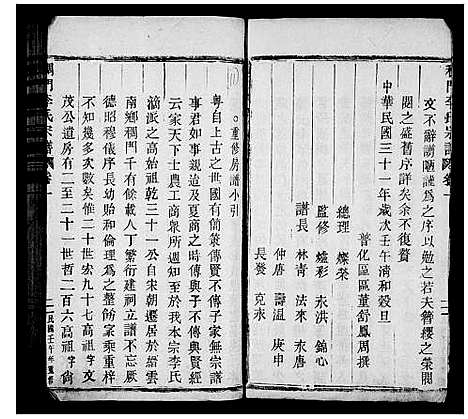 文不辭謭陋謹為之序以勉之若夫簪纓之榮閥
閱之盛舊序詳矣余不復贅
中華民國三十一年歲次壬午清和穀旦
普化區區董舒鳳周撰
總理 燦榮
監修 燧彩 永洪 錦心
譜長 林青 法來 永唐
仲唐 壽溫 庚申
吳養 克永
重修房譜小引
粵自上古之世國有前言往行子家無宗譜
事君如事親追及夏商之時傳與子不傳與賢經
云家天下士農工商眾所週知至於我本宗李氏
滴派之高始祖乾三十一公自宋朝遷居於縉雲
南鄉稠門千有餘載人丁繁衍建祠立譜不忘宗
德昭穆儀序長幼貽和倫理為之整飭衆乘重梓
不知文次數矣惟二十世宏九十七高祖字文
茂公遺房有二至二十一世哲二百六高祖字尙
稠門李氏宗譜 卷一
民國壬午年重修